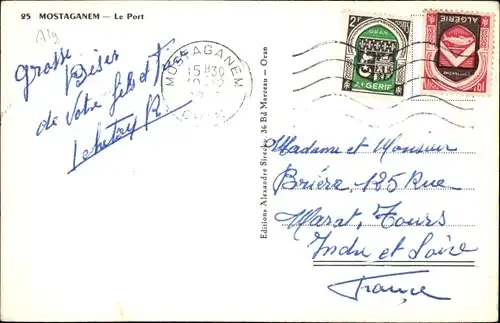 25 MOSTAGANEM — Le Port
Alg
grosse
Bises
de votre fils et
MOSTAGANEM
15 H30
ORAN
2F
ORAN
ALGERIE
ALGERIE
CONSTANTINE
10F
Editions Alexandre 36 Bd Marceau - Oran
Madame et Monsieur
Brière, 125 Rue
Marat, Tours
Indre et Loire
France